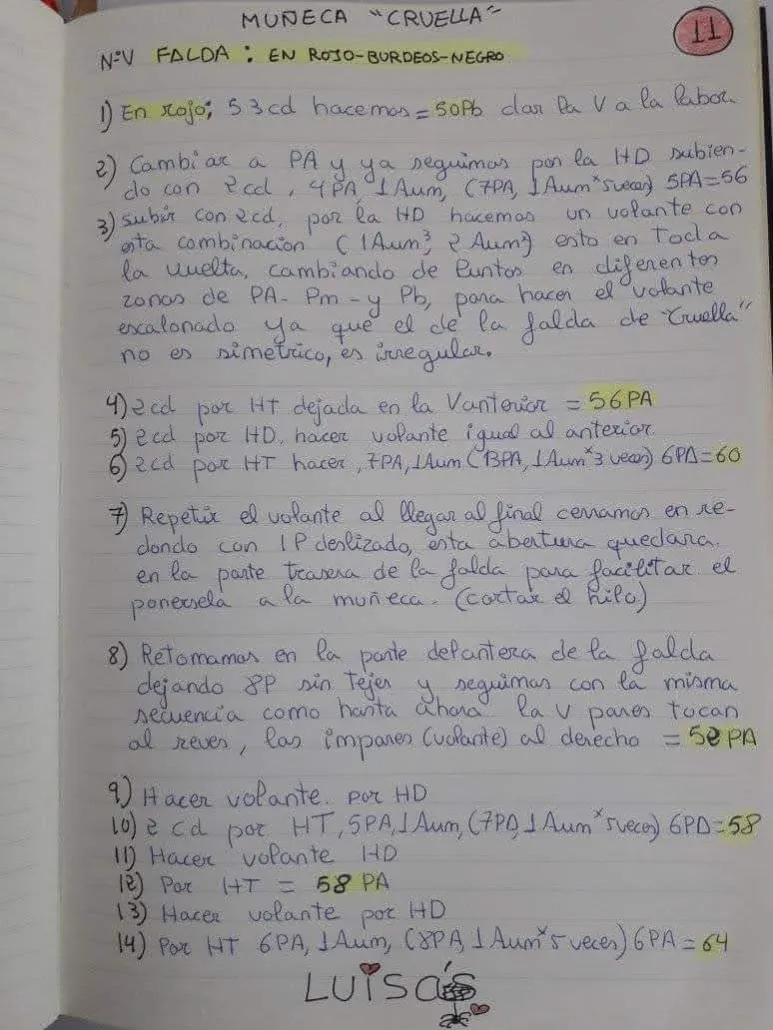 MUÑECA "CRUELLA"
11
NºV FALDA : EN ROJO-BURDEOS-NEGRO
1) En rojo; 53cd hacemos = 50Pb dar la V a la labor.
2) Cambiar a PA y ya seguimos por la HD subien-
do con 2cd, 4PA, 1Aum, (7PA, 1Aum x 5 veces) 5PA=56
3) subir con 2cd, por la HD hacemos un volante con
esta combinacion (1Aum3, 2Aum2) esto en Toda
la vuelta, cambiando de Puntos en diferentes
zonas de PA- Pm -y Pb, para hacer el volante
escalonado ya que el de la falda de "Cruella"
no es simetrico, es irregular.
4) 2cd por HT dejada en la V anterior = 56PA
5) 2cd por HD, hacer volante igual al anterior
6) 2cd por HT hacer, 7PA, 1Aum (13PA, 1Aum x 3 veces) 6PA=60
7) Repetir el volante al llegar al final cerramos en re-
dondo con 1P deslizado, esta abertura quedara
en la parte trasera de la falda para facilitar el
ponersela a la muñeca. (cortar el hilo)
8) Retomamos en la parte delantera de la falda
dejando 8P sin Tejer y seguimos con la misma
secuencia como hasta ahora la V pares tocan
al reves, las impares (volante) al derecho = 52 PA
9) Hacer volante. por HD
10) 2 cd por HT, 5PA, 1Aum, (7PA, 1Aum x 5 veces) 6PA=58
11) Hacer volante HD
12) Por HT = 58 PA
13) Hacer volante por HD
14) Por HT 6PA, 1Aum, (8PA, 1Aum x 5 veces) 6PA = 64
LUISA'S